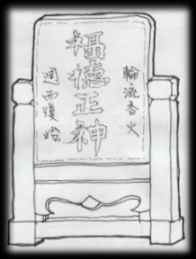 輪流香火
福德正神
週而復始